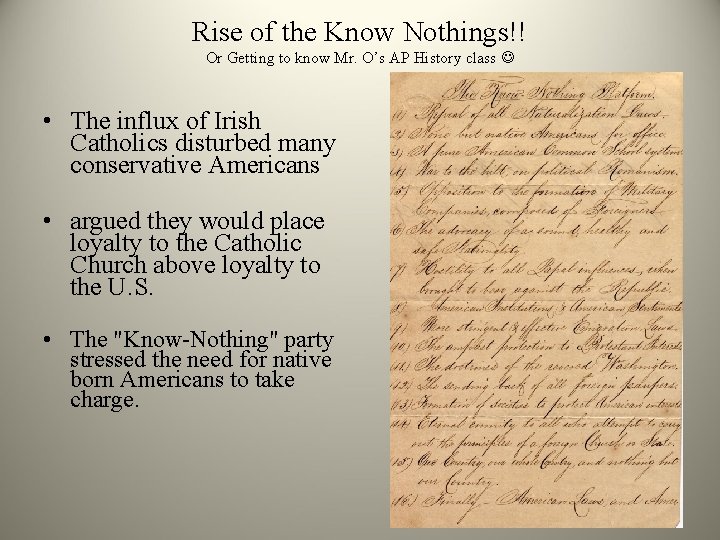 Rise of the Know Nothings!!
Or Getting to know Mr. O’s AP History class ☺
• The influx of Irish
Catholics disturbed many
conservative Americans
• argued they would place
loyalty to the Catholic
Church above loyalty to
the U.S.
• The "Know-Nothing" party
stressed the need for native
born Americans to take
charge.
The Know-Nothing Platform.
(1) Repeal of all Naturalization Laws.
(2) None but native Americans for office.
(3) A pure American Common School system
(4) War to the hilt, on political Romanism.
(5) Opposition to the formation of Military
Companies, composed of Foreigners.
(6) The advocacy of a sound, healthy and
safe Nationality.
(7) Hostility to all Papal influences, when
brought to bear against the Republic.
(8) American Institutions & American Sentiments
(9) More stringent & effective Emigration Laws.
(10) The amplest protection to Protestant Interests
(11) The doctrines of the revered Washington.
(12) The sending back of all foreign paupers.
(13) Formation of societies to protect American interests
(14) Eternal enmity to all who attempt to carry
out the principles of a foreign Church or State.
(15) Our Country, our whole Country, and nothing but
our Country.
(16) Finally,- American Laws, and